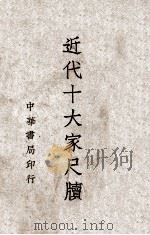 近代十大家尺牘
中華書局印行
mtoou.info